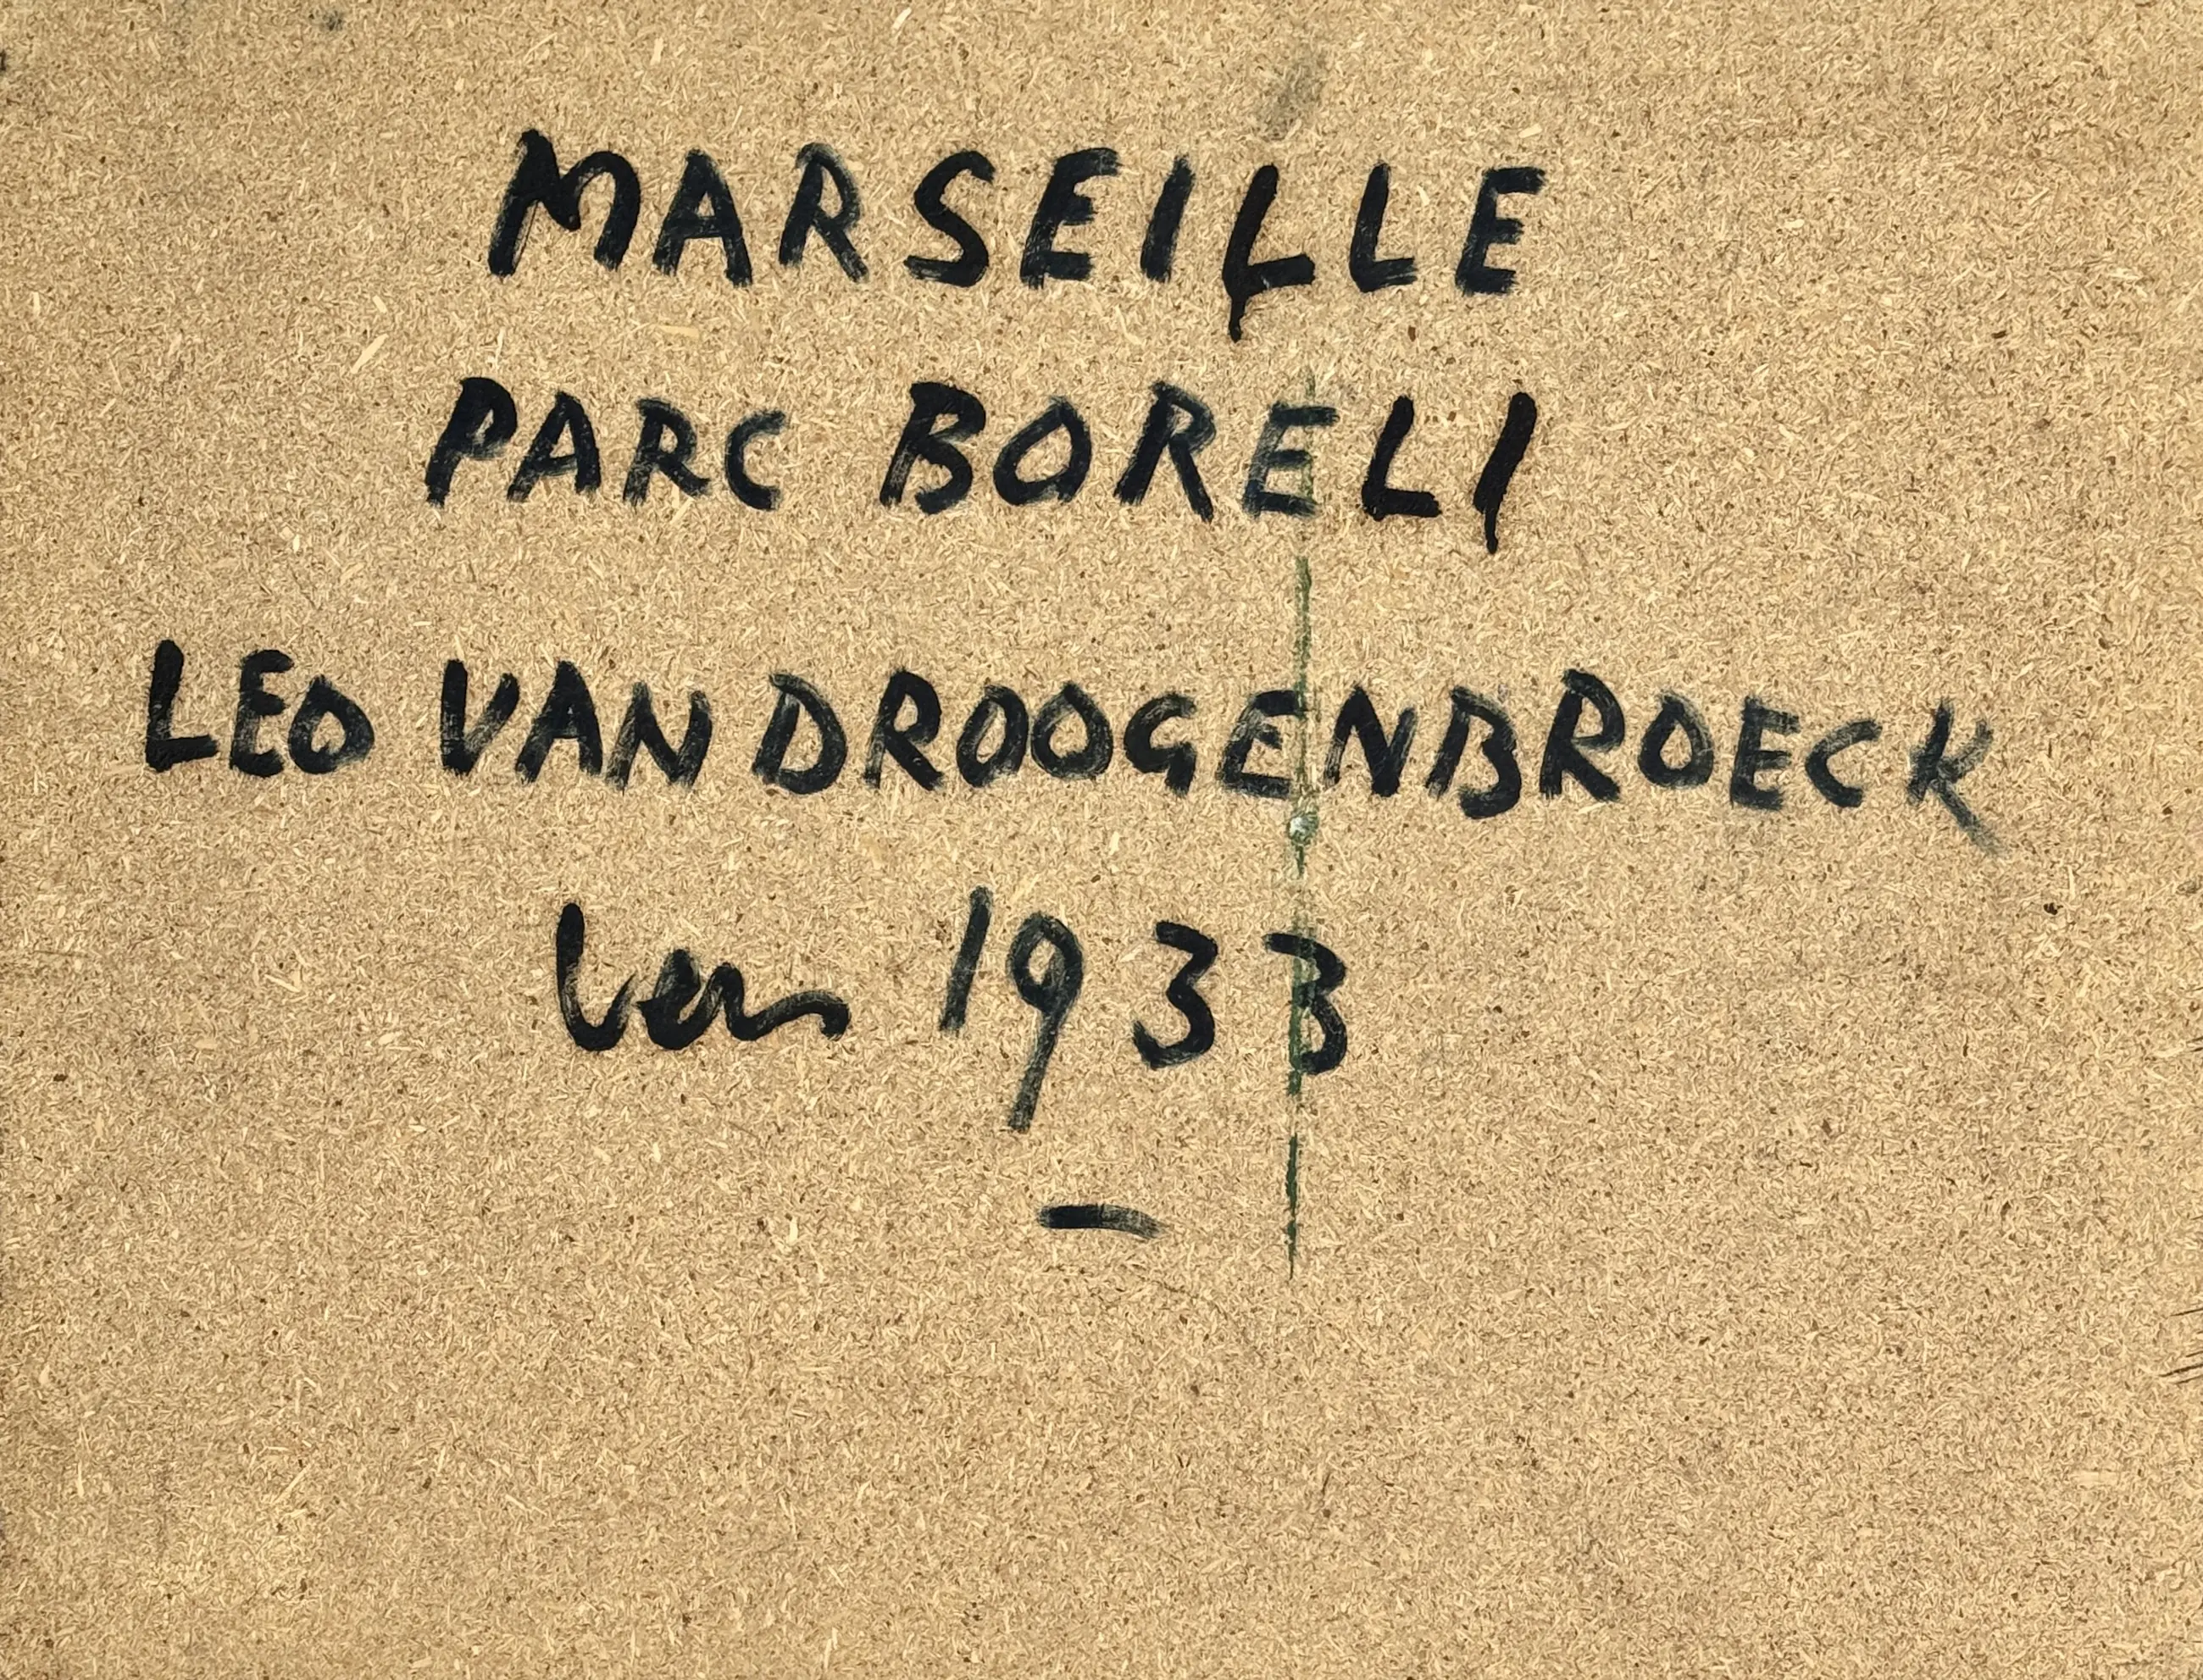 MARSEILLE
PARC BORELI
LEO VAN DROOGENBROECK
vers 1933